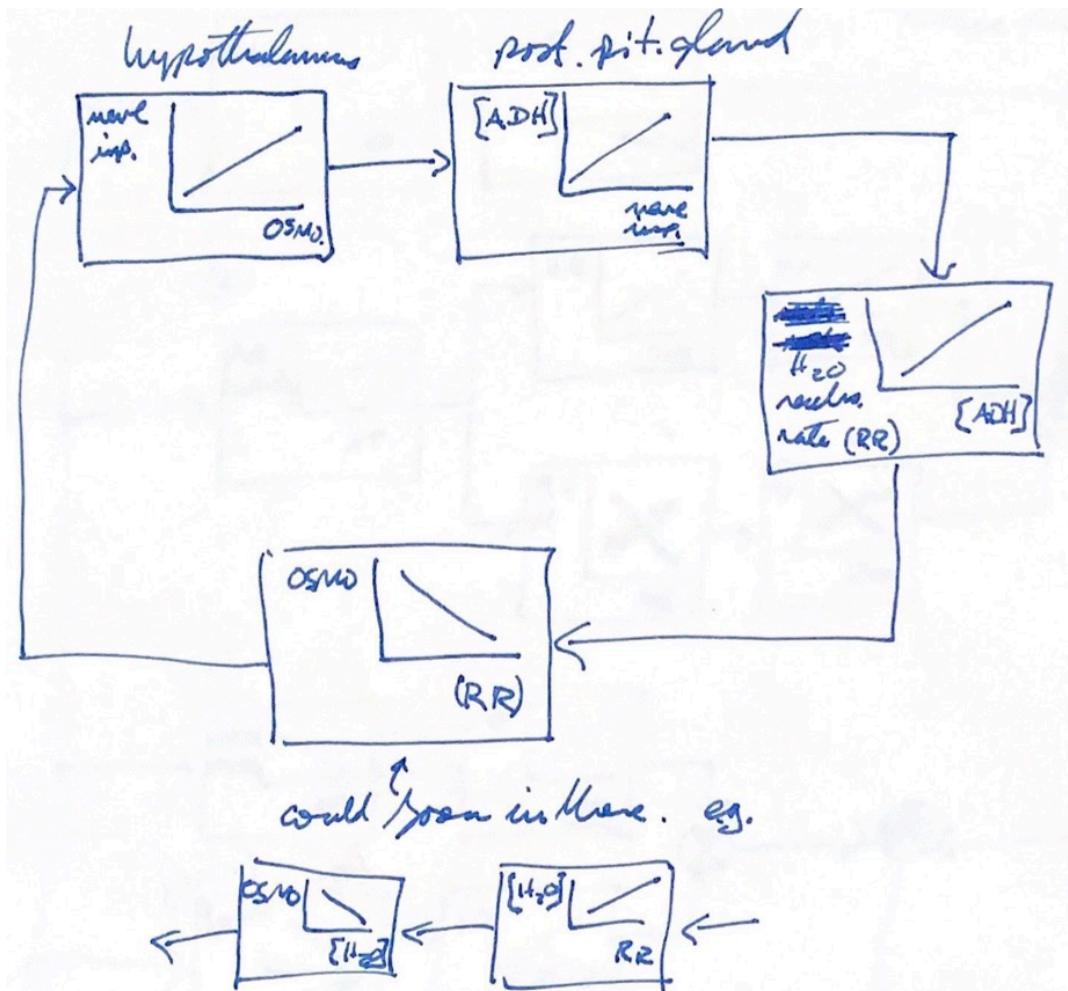 hypothalamus
post. pit. gland
nerve
imp.
OSMO.
[ADH]
nerve
imp.
H₂O
reabs.
rate (RR)
[ADH]
OSMO
(RR)
could zoom in there. e.g.
OSMO
[H₂O]
[H₂O]
RR